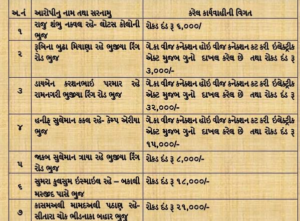 અ.નં આરોપીનુ નામ તથા સરનામુ કરેલ કાર્યવાહીની વિગત
૧ રાજુ શંભુ નાયક રહે- લોટસ કોલોની ભુજ રોકડ દંડ રૂ ૬,૦૦૦/-
૨ રૂબિના બુઢા મિયાણા રહે ભુજીયા રીંગ રોડ ભુજ ગે.કા વીજ કનેકશન હોઈ વીજ કનેકશન કટ કરી ઈલેક્ટ્રીક
એક્ટ મુજબ ગુનો દાખલ કરેલ છે તથા રોકડ દંડ રૂ
૩,૦૦૦/-
૩ ડાયમેન કરશનભાઈ પરમાર રહે
રામનગરી ભુજીયા રિંગ રોડ ભુજ
ગે.કા વીજ કનેકશન હોઈ વીજ કનેકશન કટ કરી ઈલેક્ટ્રીક
એક્ટ મુજબ ગુનો દાખલ કરેલ છે તથા રોકડ દંડ રૂ
૩૨,૦૦૦/-
૪ હનીફ સુલેમાન કકલ રહે- કેમ્પ એરીયા
ભુજ
ગે.કા વીજ કનેકશન હોઈ વીજ કનેકશન કટ કરી ઈલેક્ટ્રીક
એક્ટ મુજબ ગુનો દાખલ કરેલ છે તથા રોકડ દંડ રૂ
૧૫,૦૦૦/-
૫ જાકબ સુલેમાન ત્રાયા રહે ભુજીયા રિંગ
રોડ ભુજ
રોકડ દંડ રૂ ૮,૦૦૦/-
૬ સુમરા કુલસુમ ઇસ્માઇલ રહે – બકાલી
મસ્જીદ પાસે ભુજ
રોકડ દંડ રૂ ૧૮,૦૦૦/-
૭ કાસમઅલી મામદઅલી પઠાણ રહે-
સીતારા ચોક ભીડનાકા બહાર ભુજ
રોકડ દંડ રૂ ૨૧,૦૦૦/-